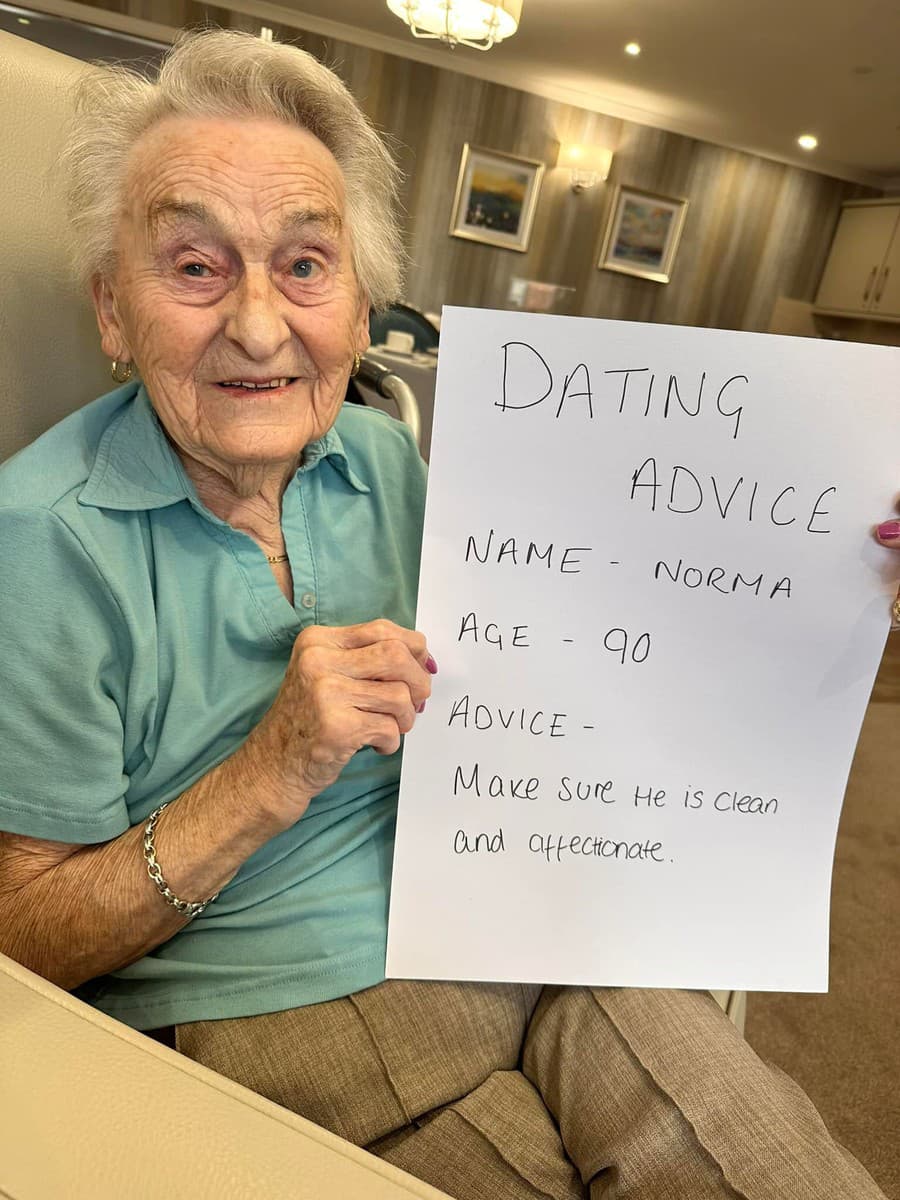 DATING
ADVICE
NAME - NORMA
AGE - 90
ADVICE -
Make sure He is clean
and affectionate.